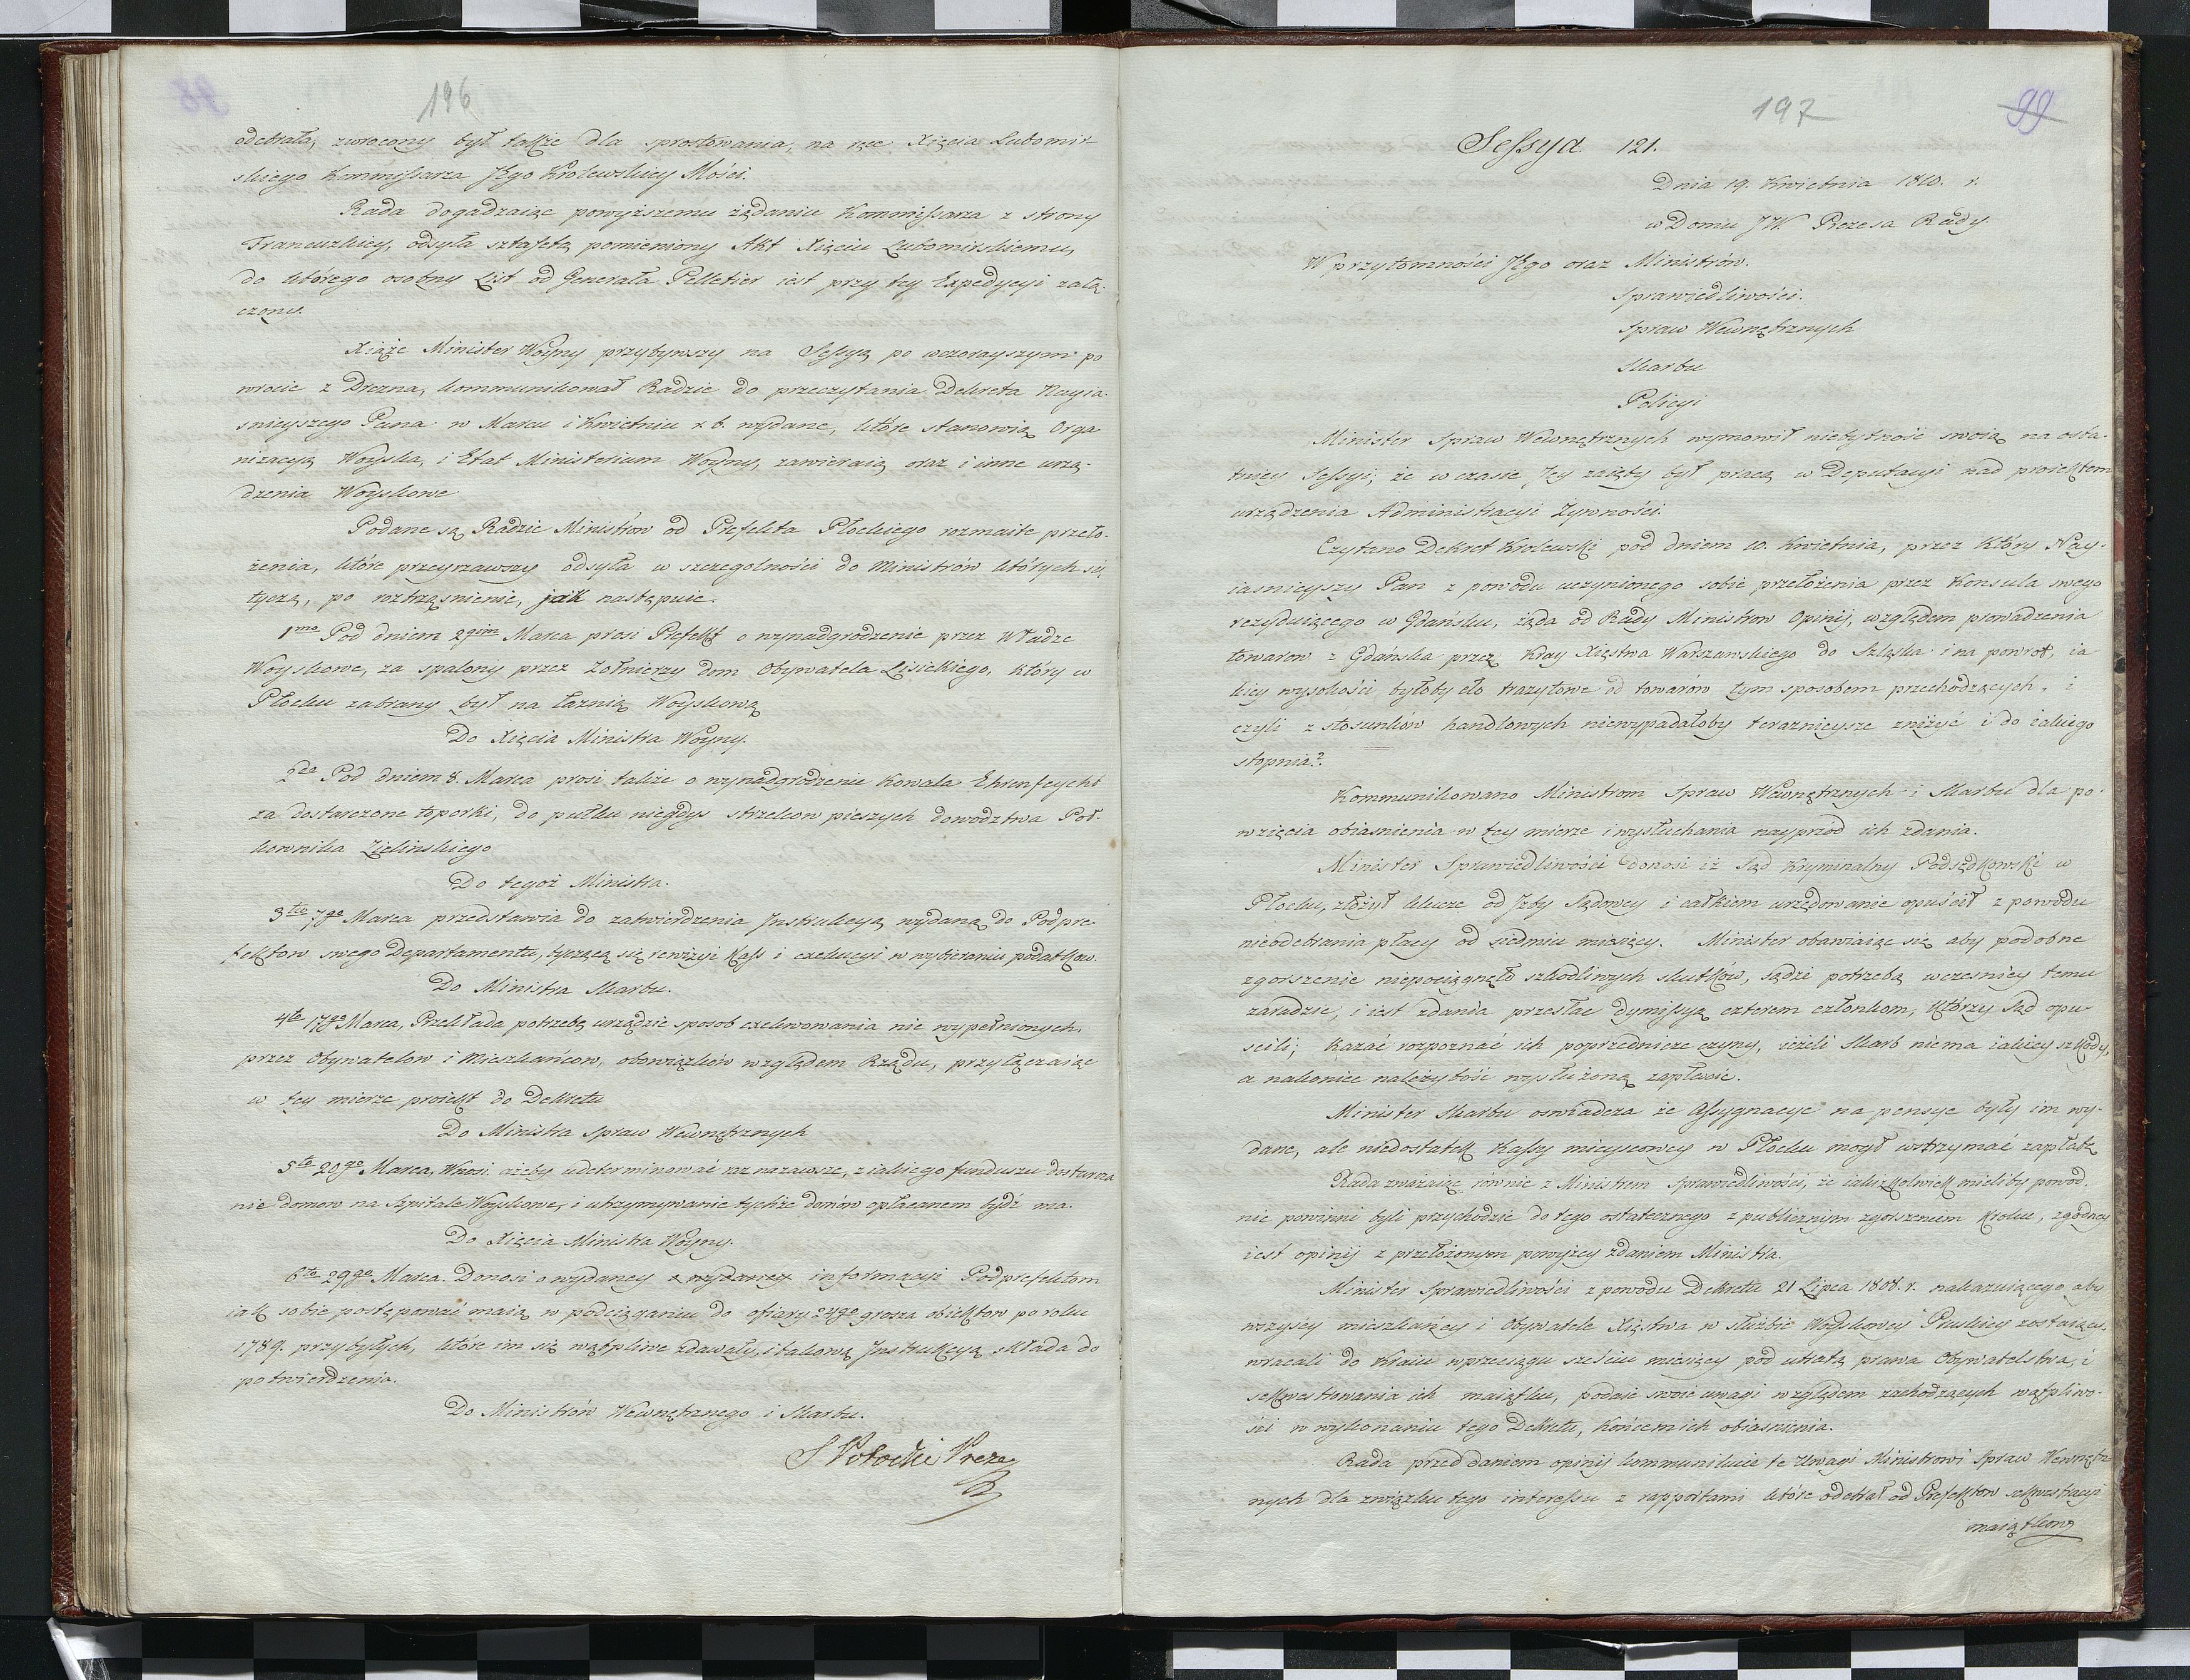 196
odebrała, zwrocony był takźe dla sprostowania, na ręce Xięcia Lubomir-
skiego Kommissarza JKgo Krolewskiey Mości.
Rada dogadzaiąc powyższemu żądaniu Kommissarza z strony
Francuzkiey, odsyła sztafetą pomieniony Akt Xięciu Lubomirskiemu,
do którego osobny List od Generała Pelletier iest przy tey Expedycyi załą-
czony.
Xiąże Minister Woyny przybywszy na Sessyą po wczorayszym po
wrocie z Drezna, kommunikował Radzie do przeczytania Dekreta Nayia-
snieyszego Pana w Marcu i Kwietniu r. b. wydane, które stanowią Orga
nizacyą Woyska, i Etat Ministerium Woyny, zawieraią oraz i inne urzą-
dzenia Woyskowe
Podane są Radzie Ministrow od Prefekta Płockiego rozmaite przeło-
żenia, które przeyrzawszy odsyła w szczegolności do Ministrów których się
tyczą, po roztrząsnienie, jak nastąpuie.
1mo Pod dniem 2gim Marca prosi Prefekt o wynadgrodzenie przez Władze
Woyskowe, za spalony przez Zołnierzy dom Obywatela Lisickiego, który w
Płocku zabrany był na łaznią Woyskową
Do Xięcia Ministra Woyny.
2do Pod dniem 8. Marca prosi także o wynadgrodzenie Kowala Ehrenfeycht
za dostarczone toporki, do pułku niegdys strzelcow pieszych dowodztwa Poł-
kownika Zielinskiego
Do tegoż Ministra.
3tio 7go Marca przedstawia do zatwierdzenia Instrukcyą wydaną do Podpre-
fektow swego Departamentu, tyczącą się rewizyi Kass i exekucyi w wybieraniu podatkow.
Do Ministra Skarbu.
4to 17go Marca, Przekłada potrzebę urządzic sposob exekwowania nie wypełnionych,
przez Obywatelow i Mieszkańcow, obowiązków względem Rządu, przyłączaiąc
w tey mierze proiekt do Dekretu
Do Ministra Spraw Wewnętrznych
5to 20go Marca, Wnosi. ażeby udeterminować raz nazawsze, z iakiego funduszu dostarcza
nie domow na Szpitale Woyskowe, i utrzymywanie tychże domów opłacanem bydź ma.
Do Xięcia Ministra Woyny.
6to 29go Marca. Donosi o wydaney o wydaney informacyi Podprefektom
iak sobie postępować maią w podciąganiu do ofiary 24go grosza obiektow po roku
1789. przybyłych, które im się wątpliwe zdawały, i takową Instrukcyą składa do
potwierdzenia.
Do Ministrów Wewnętrznego i Skarbu.
S Potocki Preze
R
197
99
Sessya 121.
Dnia 19. Kwietnia 1810. r.
w Domu JW. Prezesa Rady.
W przytomności JEgo oraz Ministrów.
Sprawiedliwości.
Spraw Wewnętrznych
Skarbu
Policyi
Minister Spraw Wewnętrznych wymowił niebytnosc swoią na osta-
tniey Sessyi, że w czasie Jey zaięty był pracą w Deputacyi nad proiektem
urządzenia Administracyi Żywności.
Czytano Dekret Krolewski pod dniem 10. Kwietnia, przez który Nay-
iasnieyszy Pan z powodu uczynionego sobie przełożenia przez Konsula swego
rezyduiącego w Gdańsku, żąda od Rady Ministrow Opinij, względem prowadzenia
towarow z Gdańska przez Kray Xięstwa Warszawskiego do Szląska i na powrot, ia
kiey wysokości byłoby cło tranzytowe od towarów tym sposobem przechodzących, i
czyli z stosunków handlowych niewypadałoby teraznieysze zniżyć i do iakiego
stopnia?
Kommunikowano Ministrom Spraw Wewnętrznych i Skarbu dla po-
wzięcia obiasnienia w tey mierze i wysłuchania nayprzod ich zdania.
Minister Sprawiedliwości donosi iż Sąd Kryminalny Podsędkowski w
Płocku, złożył klucze od Jzby Sądowey i całkiem urzędowanie opuścił z powodu
nieodebrania płacy od siedmiu miesięcy. Minister obawiaiąc się aby podobne
zgorszenie niepociągnęło szkodliwych skutków, sądzi potrzebą wczesniey temu
zaradzic, i iest zdania przesłac dymissyą czterem członkom, którzy Sąd opu-
scili; Kazać rozpoznać ich poprzednicze czyny, ieżeli Skarb niema iakiey szkody,
a nakoniec należytość wysłużoną zapłacic.
Minister Skarbu oswiadcza że Assygnacye na pensye były im wy-
dane, ale niedostatek Kassy mieyscowey w Płocku mogł wstrzymać zapłatę
Rada zważaiąc równie z Ministrem Sprawiedliwości, że iakiżkolwiek mieliby powod.
nie powinni byli przychodzic do tego ostatecznego z publicznym zgorszeniem Kroku, zgodney
iest opinij z przełożonym powyżey zdaniem Ministra.
Minister Sprawiedliwości z powodu Dekretu 21 Lipca 1808. r. nakazuiącego aby
wszyscy mieszkańcy i Obywatele Xięstwa w służbie Woyskowey Pruskiey zostaiący,
wracali do Kraiu wprzeciągu sześciu miesięcy pod utratą prawa Obywatelstwa, i
sekwestrowania ich maiątku, podaie swoie uwagi względem zachodzących wątpliwo-
ści w wykonaniu tego Dekretu, końcem ich obiasnienia.
Rada przed daniem opinij kommunikuie te Uwagi Ministrowi Spraw Wewnętrz
nych dla związku tego interessu z rapportami które odebrał od Prefektow sekwestracyi
maiątkow